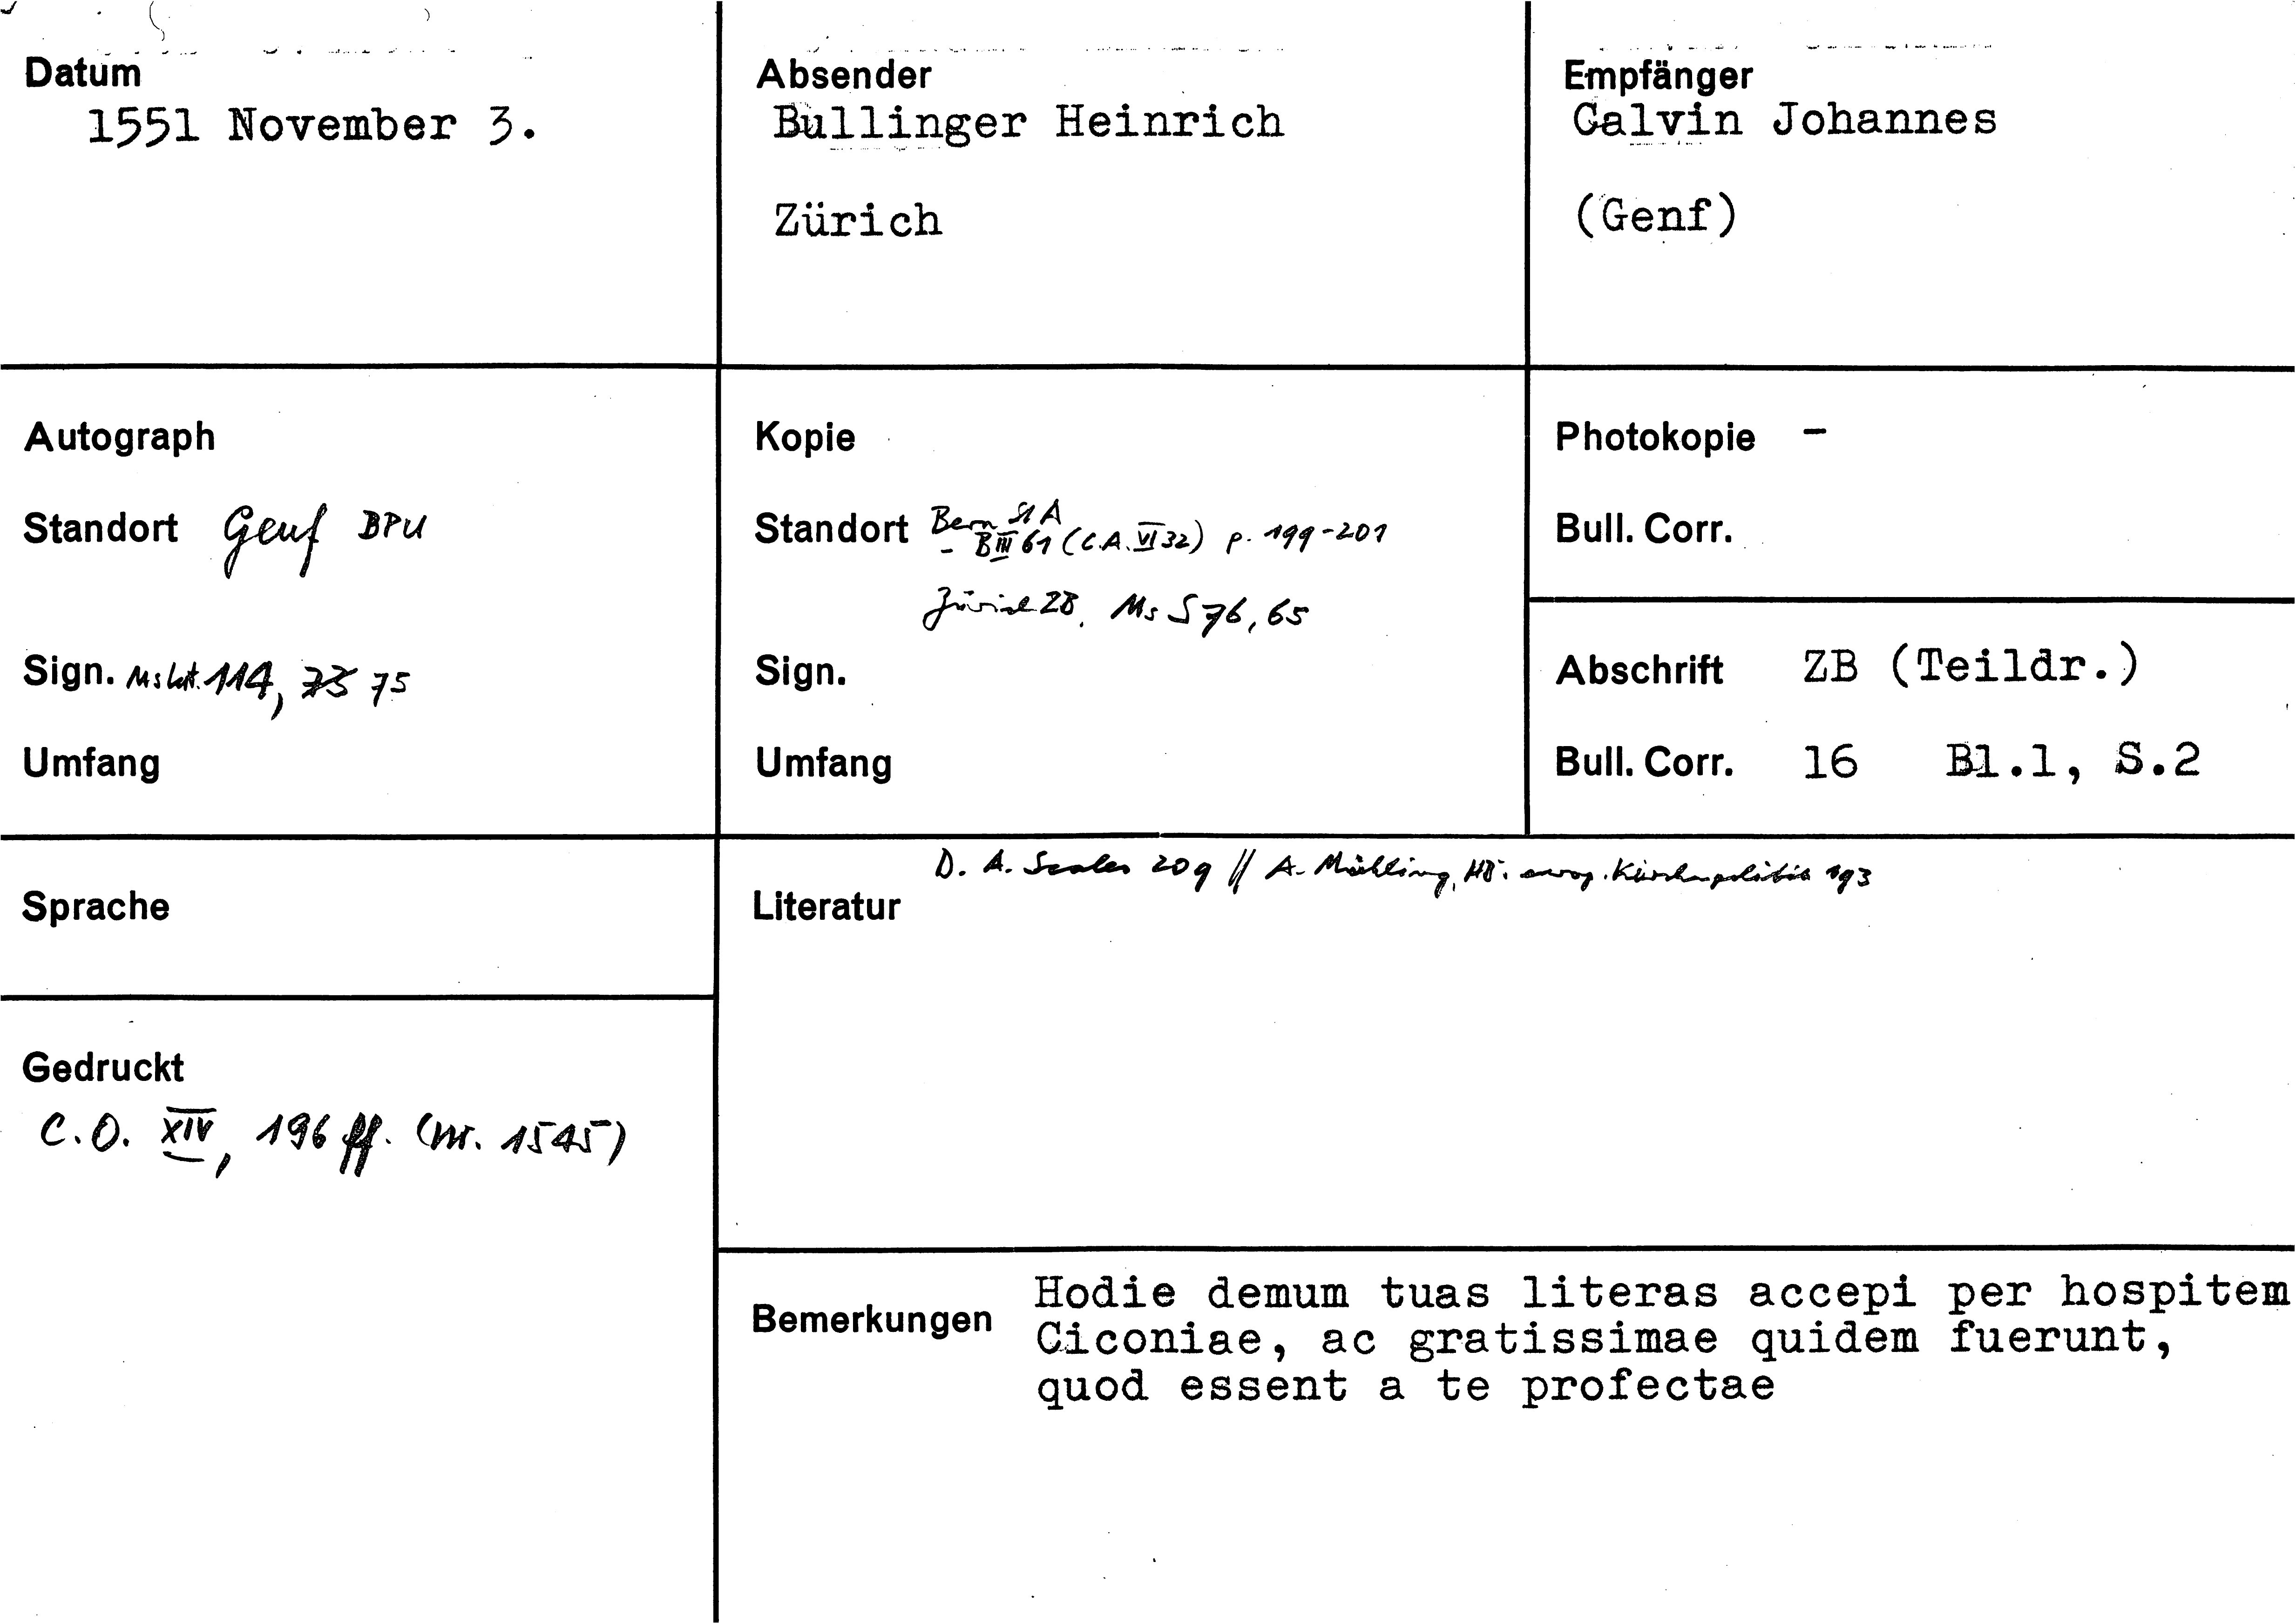 Datum
1551 November 3.
Absender
Bullinger Heinrich
Zürich
Empfänger
Calvin Johannes
(Genf)
Autograph
Standort Genf BPU
Sign. Ms lat. 114, 73 75
Umfang
Kopie
Standort Bern StA
- B III 61 (C.A. VI 32) p. 199-201
Zürich ZB, Ms S 76, 65
Sign.
Umfang
Photokopie -
Bull. Corr.
Abschrift ZB (Teildr.)
Bull. Corr. 16 Bl.1, S.2
Sprache
Literatur D. A. Scales 209 // A. Mühling, HB: europ. Kirchenpolitik 193
Gedruckt
C.O. XIV, 196 ff. (nr. 1545)
Bemerkungen Hodie demum tuas literas accepi per hospitem
Ciconiae, ac gratissimae quidem fuerunt,
quod essent a te profectae